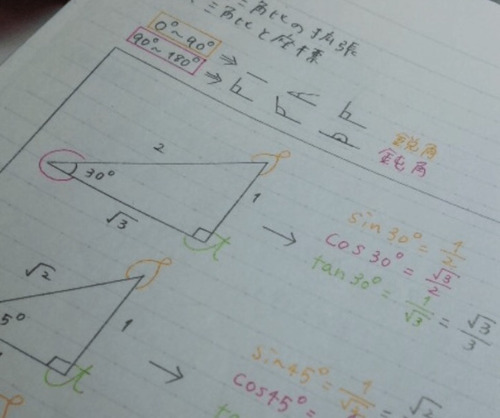 三角比の拡張
三角比と座標
0°~90° ⇒
90°~180° ⇒
鋭角
鈍角
2
30°
1
√3
t
→ sin30° = 1/2
cos30° = √3/2
tan30° = 1/√3 = √3/3
√2
5°
1
t
→ sin45° = 1/√
cos45° =